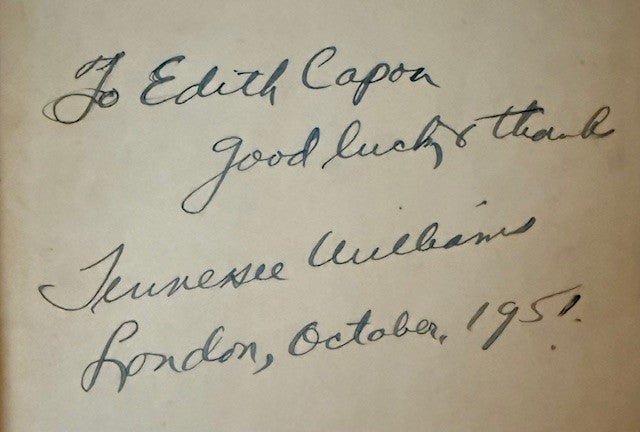 To Edith Capon
good luck & thank
Tennessee Williams
London, October, 1951.